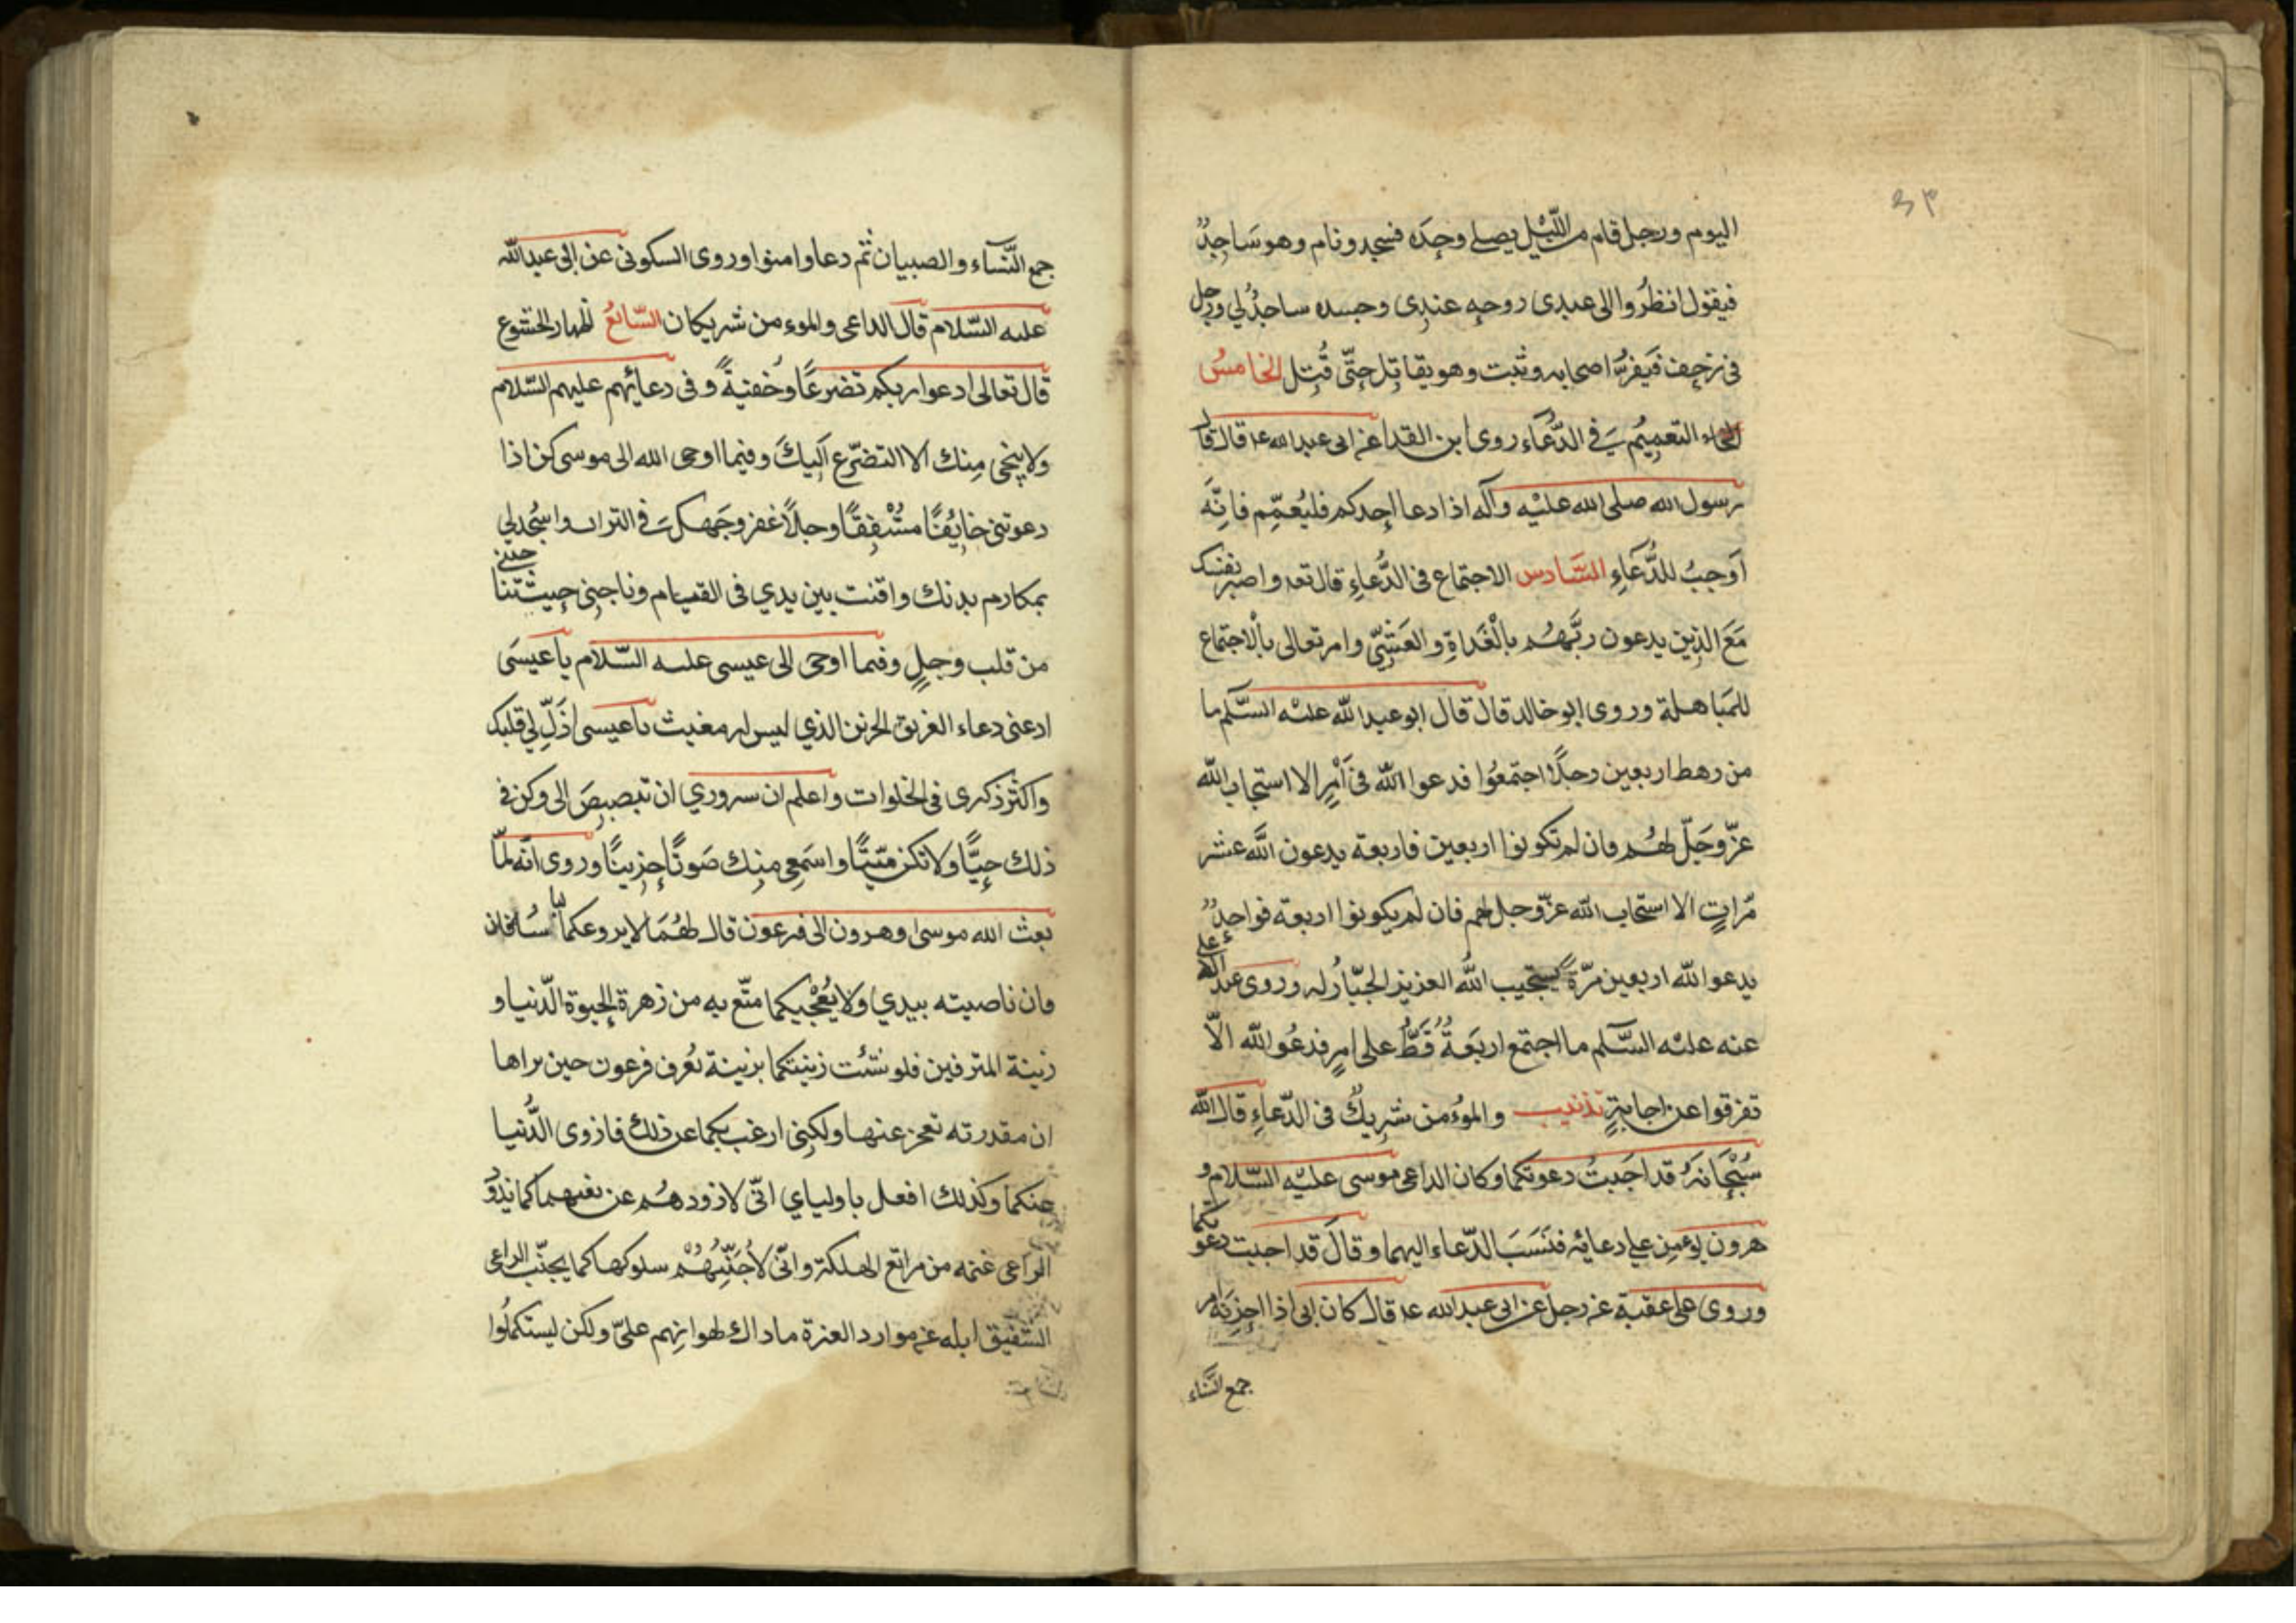 ٤٣
اليوم ورجل قام من اللّيْل يصلے وحده فسجد ونام وهو سَاجِدٌ
فيقول انظُروا الى عبدى روحه عندى وجسده ساجدٌ لي ورجل
فى زحف فَيفرّ اصحابه وثبت وهو يقاتِل حتّى قُتِل الخامسُ
التعمِيُم فے الدّعَاء روى ابن القداح عن ابى عبد الله عا قال قال
رسول الله صلى الله عليْه وآله اذا دعا احدكم فليُعمِّم فانّهَ
اَوجبُ للدُّعَاءِ السَّادس الاجتماع فى الدُّعاءِ قال تعه واصبر نفسك
مَعَ الذين يدعون ربَّهُم بالْغَداةِ والعَشِيّ وامر تعالى بالْاجتماع
للمَباهلة وروى ابو خالد قال قال ابو عبد الله عليْه السَّلم ما
من رهط اربعين رجلًا اجتمعُوا فدعوا الله فى اَمْرٍ الا استجاب الله
عزّ وجَلّ لهُم فان لم تكونوا اربعين فاربعة يدعون اللَّه عشر
مّراتٍ الا استجاب الله عزّ وجل لهم فان لم يكونوا اربعة فواحدٌ
يدعو الله اربعين مرّةً يستجيب اللهُ العزيز الجبّارُ له وروى عبد الاعلى
عنه عليْه السَّلم ما اجتمع اربَعَةٌ قَطُّ على امرٍ فدعُو الله الّا
تفرقوا عن اجابةٍ تذنيب والموُمن شريكٌ فى الدّعاءِ قال الله
سُبْحَانهُ قد اجَبتُ دعوتكما وكان الداعى موسى عليْه السّلام و
هرون يوَمِن على دعائه فنَسَبَ الدّعاء اليهما وقالَ قد اجبت دعوتكما
وروى على عقبة عن رجل عن ابى عبد الله عا قال كان ابى اذا احزنهَ امر
جمع النّسَاء
جمع النّسَآء والصبيان ثّم دعا وامنوا وروى السكونى عن ابى عبد الله
عليه السّلام قال الداعى والموءمن شريكان السّابعُ اظهار الخشوع
قال تعالى ادعوا ربكم تضرعًا وخُفيةً وفى دعائهم عليهم السّلام
ولا ينجى مِنك الا التضرّع اليكَ وفيما اوحى الله الى موسى كن اذا
دعوتنى خايُفًا مشْفِقًا وجلًا عفر وجَهك فے التراب واسجُد لي
بمكارم بدنك واقنت بين يدي فى القيام وناجنى حيث تناجينى
من قلب وجلٍ وفيما اوحى الى عيسى عليه السّلام يا عيسَى
ادعنى دعاء الغريق الحزين الذي ليس له مغيث يا عيسى اذَلِّ لي قلبك
واكثر ذكرى فى الخلوات واعلم ان سروري ان تبصبصَ الى وكن فى
ذلك حيًّا ولا تكن ميّتًا واسَمِعى مِنك صَوتًا حزينًا وروى انه لمّا
بعث الله موسى وهرون الى فرعون قال لهُمَا لا يروعكما لباسُه فان
وان ناصيته بيدي ولا يُعْجبكما متّع به من زهرة الحيوة الّدنيا و
زينة المترفين فلو شئت زينتكما بزينة يُعرف فرعون حين يراها
ان مقدرته تعجز عنها ولكنى ارغب بكما عن ذلك فازوى الدُّنيا
عنكما وكذلك افعل باوليايي انّى لاذودهُم عن نعيمها كما يذوَدُ
الراعى غنمه من مراتع الهلكة وانّى لاُجَنِّبُهُمْ سلوكها كما يجنّب الراعى
الشفيق ابله عن موارد العزة ما ذاك لهوانِهم علىّ ولكن ليستكملُوا